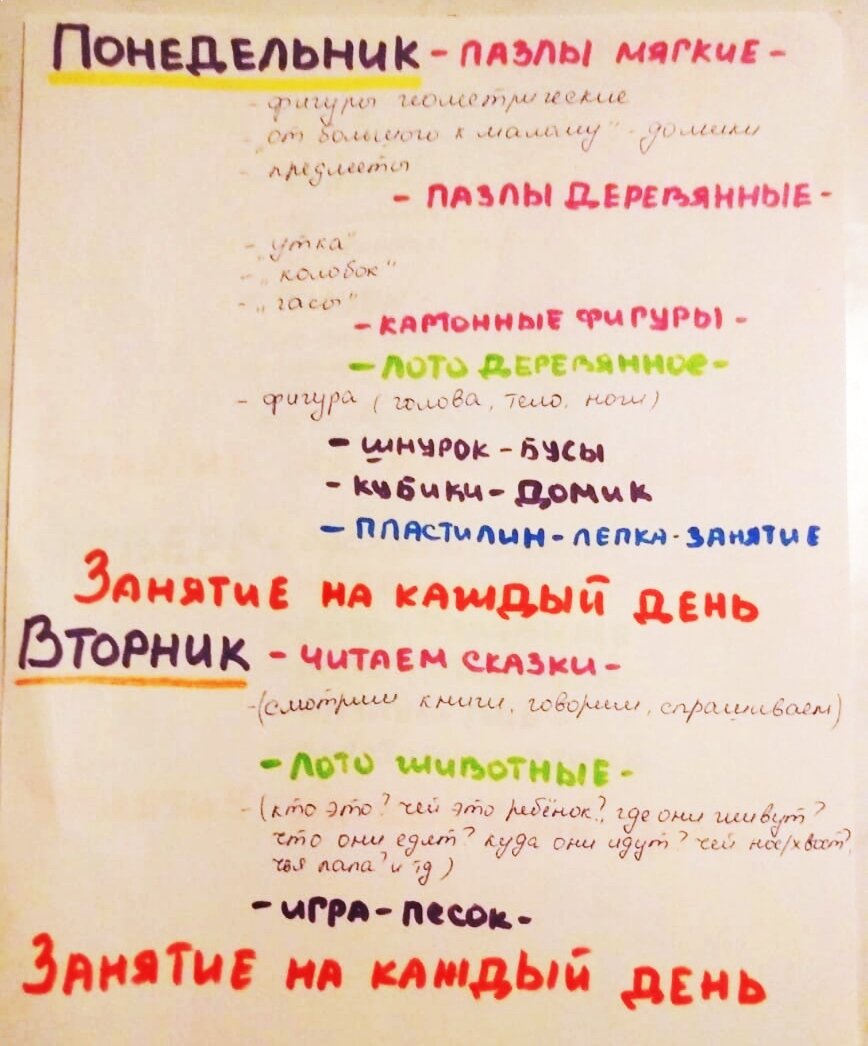 Понедельник - пазлы мягкие -
- фигуры геометрические
- „от большого к малому" - домики
- предметы
- пазлы деревянные -
- „утка"
- „колобок"
- „часы"
- картонные фигуры -
- лото деревянное -
- фигура (голова, тело, ноги)
- шнурок - бусы
- кубики - домик
- пластилин - лепка - занятие
Занятие на каждый день
Вторник - читаем сказки -
- (смотрим книги, говорим, спрашиваем)
- лото животные -
- (кто это? чей это ребёнок? где они живут?
что они едят? куда они идут? чей нос/хвост?
чья лапа? и тд)
- игра - песок -
Занятие на каждый день